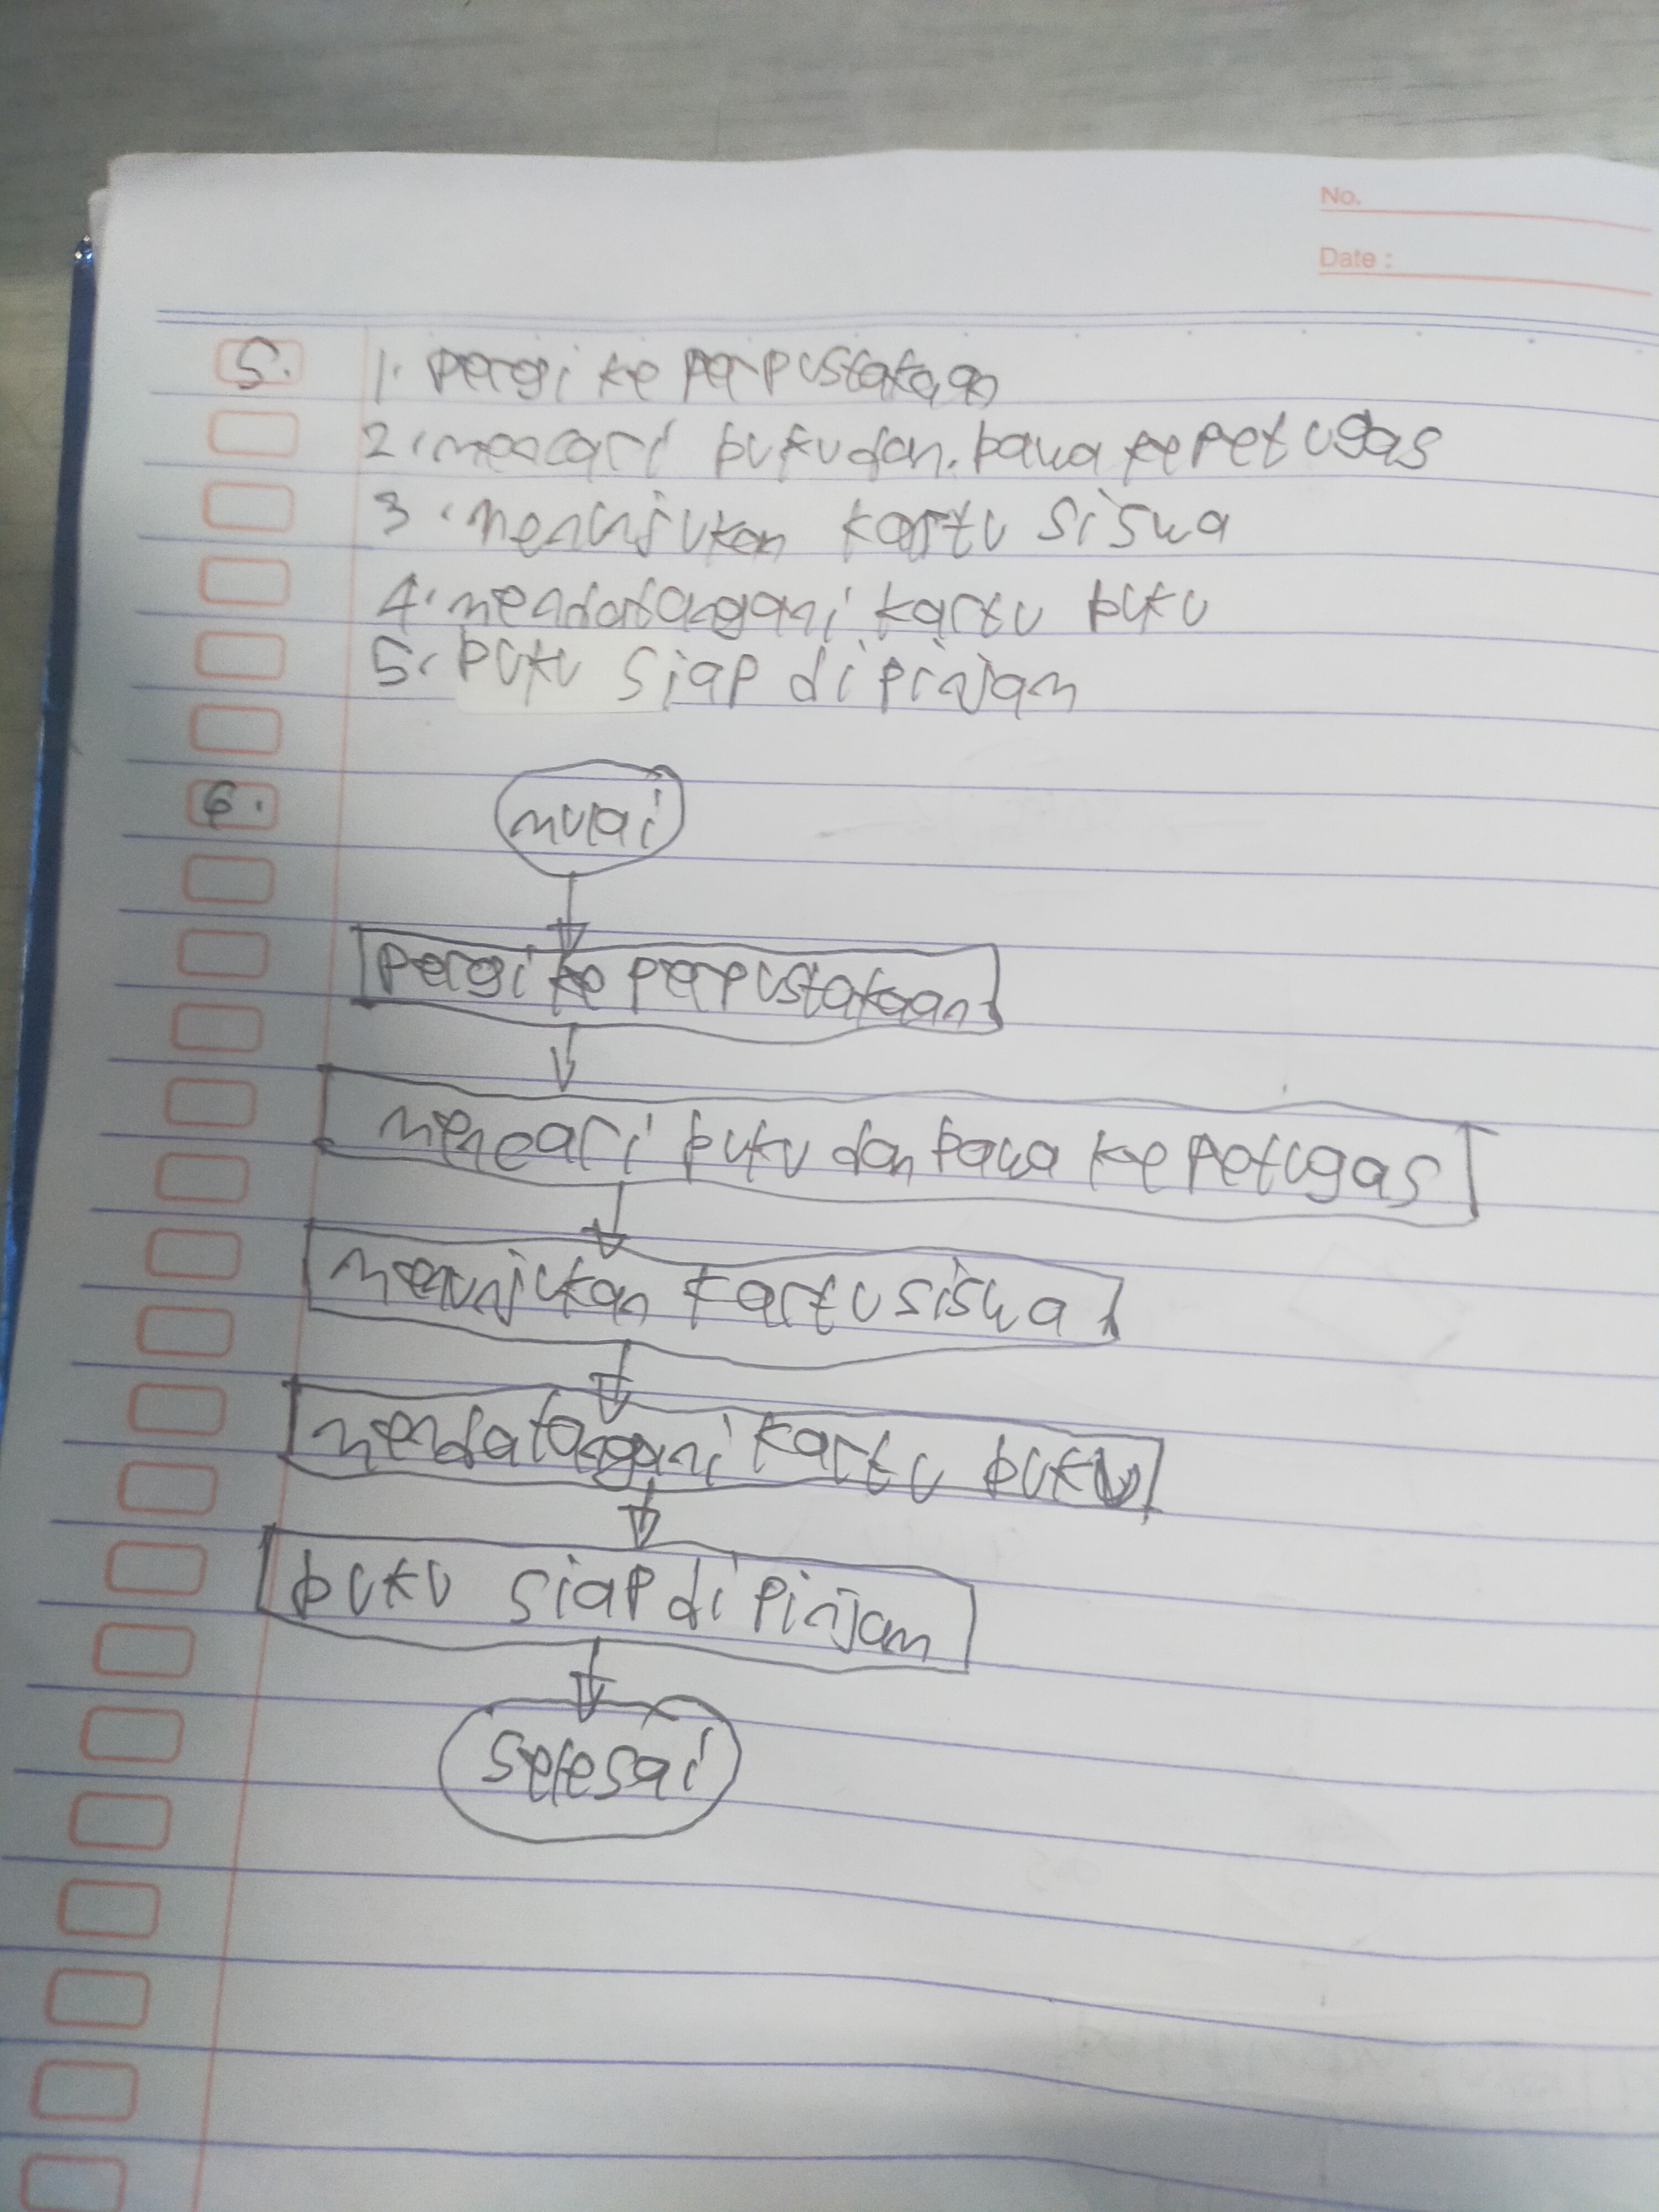 No.
Date :
5. 1. pergi ke perpustakaan
2. mencari buku dan. bawa ke petugas
3. menunjukan kartu siswa
4. mendatangani kartu buku
5. buku siap di pinjam
6. mulai
pergi ke perpustakaan
mencari buku dan bawa ke petugas
menunjukan kartu siswa
mendatangani kartu buku
buku siap di pinjam
selesai